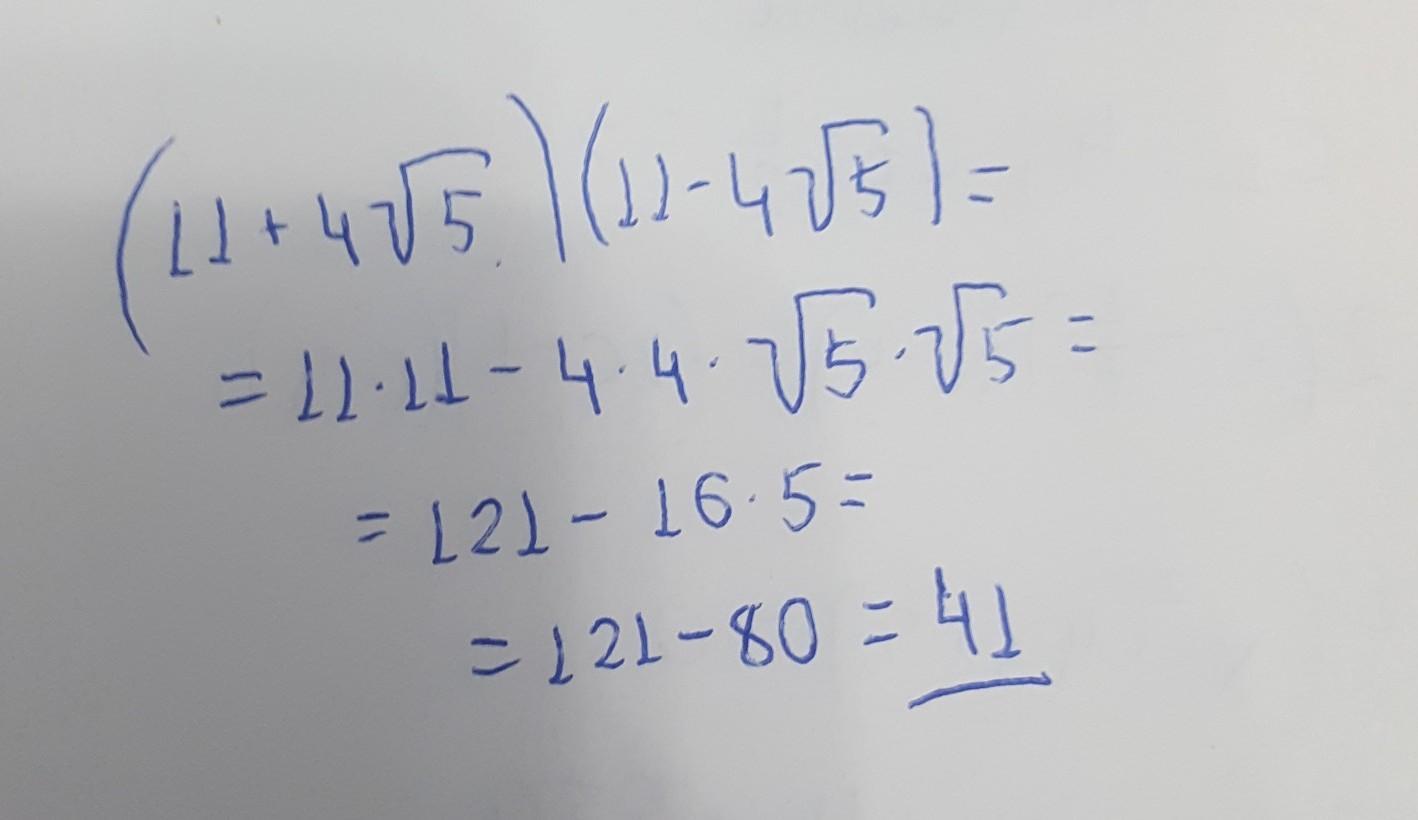 (11+4√5)(11-4√5)=
=11·11-4·4·√5·√5=
=121-16·5=
=121-80=41